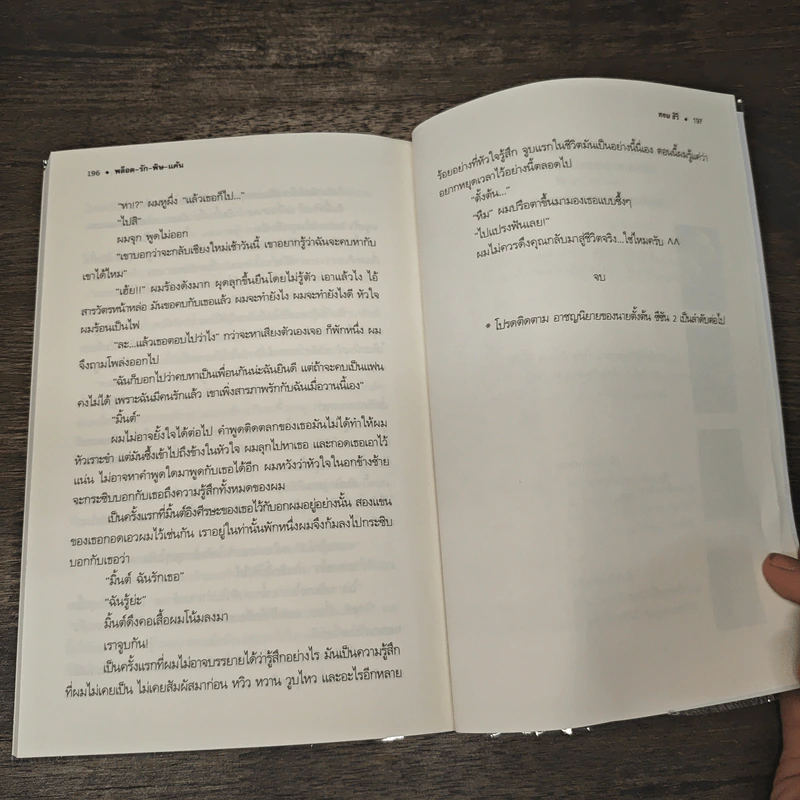 196 • พล็อต-รัก-พิษ-แค้น
"หา!?" ผมหูผึ่ง "แล้วเธอก็ไป..."
"ไปสิ"
ผมจุก พูดไม่ออก
"เขาบอกว่าจะกลับเชียงใหม่เช้าวันนี้ เขาอยากรู้ว่าฉันจะคบหากับ
เขาได้ไหม"
"เฮ้ย!!" ผมร้องดังมาก ผุดลุกขึ้นยืนโดยไม่รู้ตัว เอาแล้วไง ไอ้
สารวัตรหน้าหล่อ มันขอคบกับเธอแล้ว ผมจะทำยังไง ผมจะทำยังไงดี หัวใจ
ผมร้อนเป็นไฟ
"ละ...แล้วเธอตอบไปว่าไง" กว่าจะหาเสียงตัวเองเจอ ก็พักหนึ่ง ผม
จึงถามโพล่งออกไป
"ฉันก็บอกไปว่าคบหาเป็นเพื่อนกันน่ะฉันยินดี แต่ถ้าจะคบเป็นแฟน
คงไม่ได้ เพราะฉันมีคนรักแล้ว เขาเพิ่งสารภาพรักกับฉันเมื่อวานนี้เอง"
"มิ้นต์"
ผมไม่อาจยั้งใจได้ต่อไป คำพูดติดตลกของเธอมันไม่ได้ทำให้ผม
หัวเราะขำ แต่มันซึ้งเข้าไปถึงข้างในหัวใจ ผมลุกไปหาเธอ และกอดเธอเอาไว้
แน่น ไม่อาจหาคำพูดใดมาพูดกับเธอได้อีก ผมหวังว่าหัวใจในอกข้างซ้าย
จะกระซิบบอกกับเธอถึงความรู้สึกทั้งหมดของผม
เป็นครั้งแรกที่มิ้นต์อิงศีรษะของเธอไว้กับอกผมอยู่อย่างนั้น สองแขน
ของเธอกอดเอวผมไว้เช่นกัน เราอยู่ในท่านั้นพักหนึ่งผมจึงก้มลงไปกระซิบ
บอกกับเธอว่า
"มิ้นต์ ฉันรักเธอ"
"ฉันรู้ย่ะ"
มิ้นต์ดึงคอเสื้อผมโน้มลงมา
เราจูบกัน!
เป็นครั้งแรกที่ผมไม่อาจบรรยายได้ว่ารู้สึกอย่างไร มันเป็นความรู้สึก
ที่ผมไม่เคยเป็น ไม่เคยสัมผัสมาก่อน หวิว หวาน วูบไหว และอะไรอีกหลาย
• 197
ร้อยอย่างที่หัวใจรู้สึก จูบแรกในชีวิตมันเป็นอย่างนี้นี่เอง ตอนนี้ผมรู้แต่ว่า
อยากหยุดเวลาไว้อย่างนี้ตลอดไป
"ตั้งต้น..."
"หืม" ผมปรือตาขึ้นมามองเธอแบบซึ้งๆ
"ไปแปรงฟันเลย!"
ผมไม่ควรดึงคุณกลับมาสู่ชีวิตจริง...ใช่ไหมครับ ^^
จบ
• โปรดติดตาม อาชญนิยายของนายตั้งต้น ซีซัน 2 เป็นลำดับต่อไป